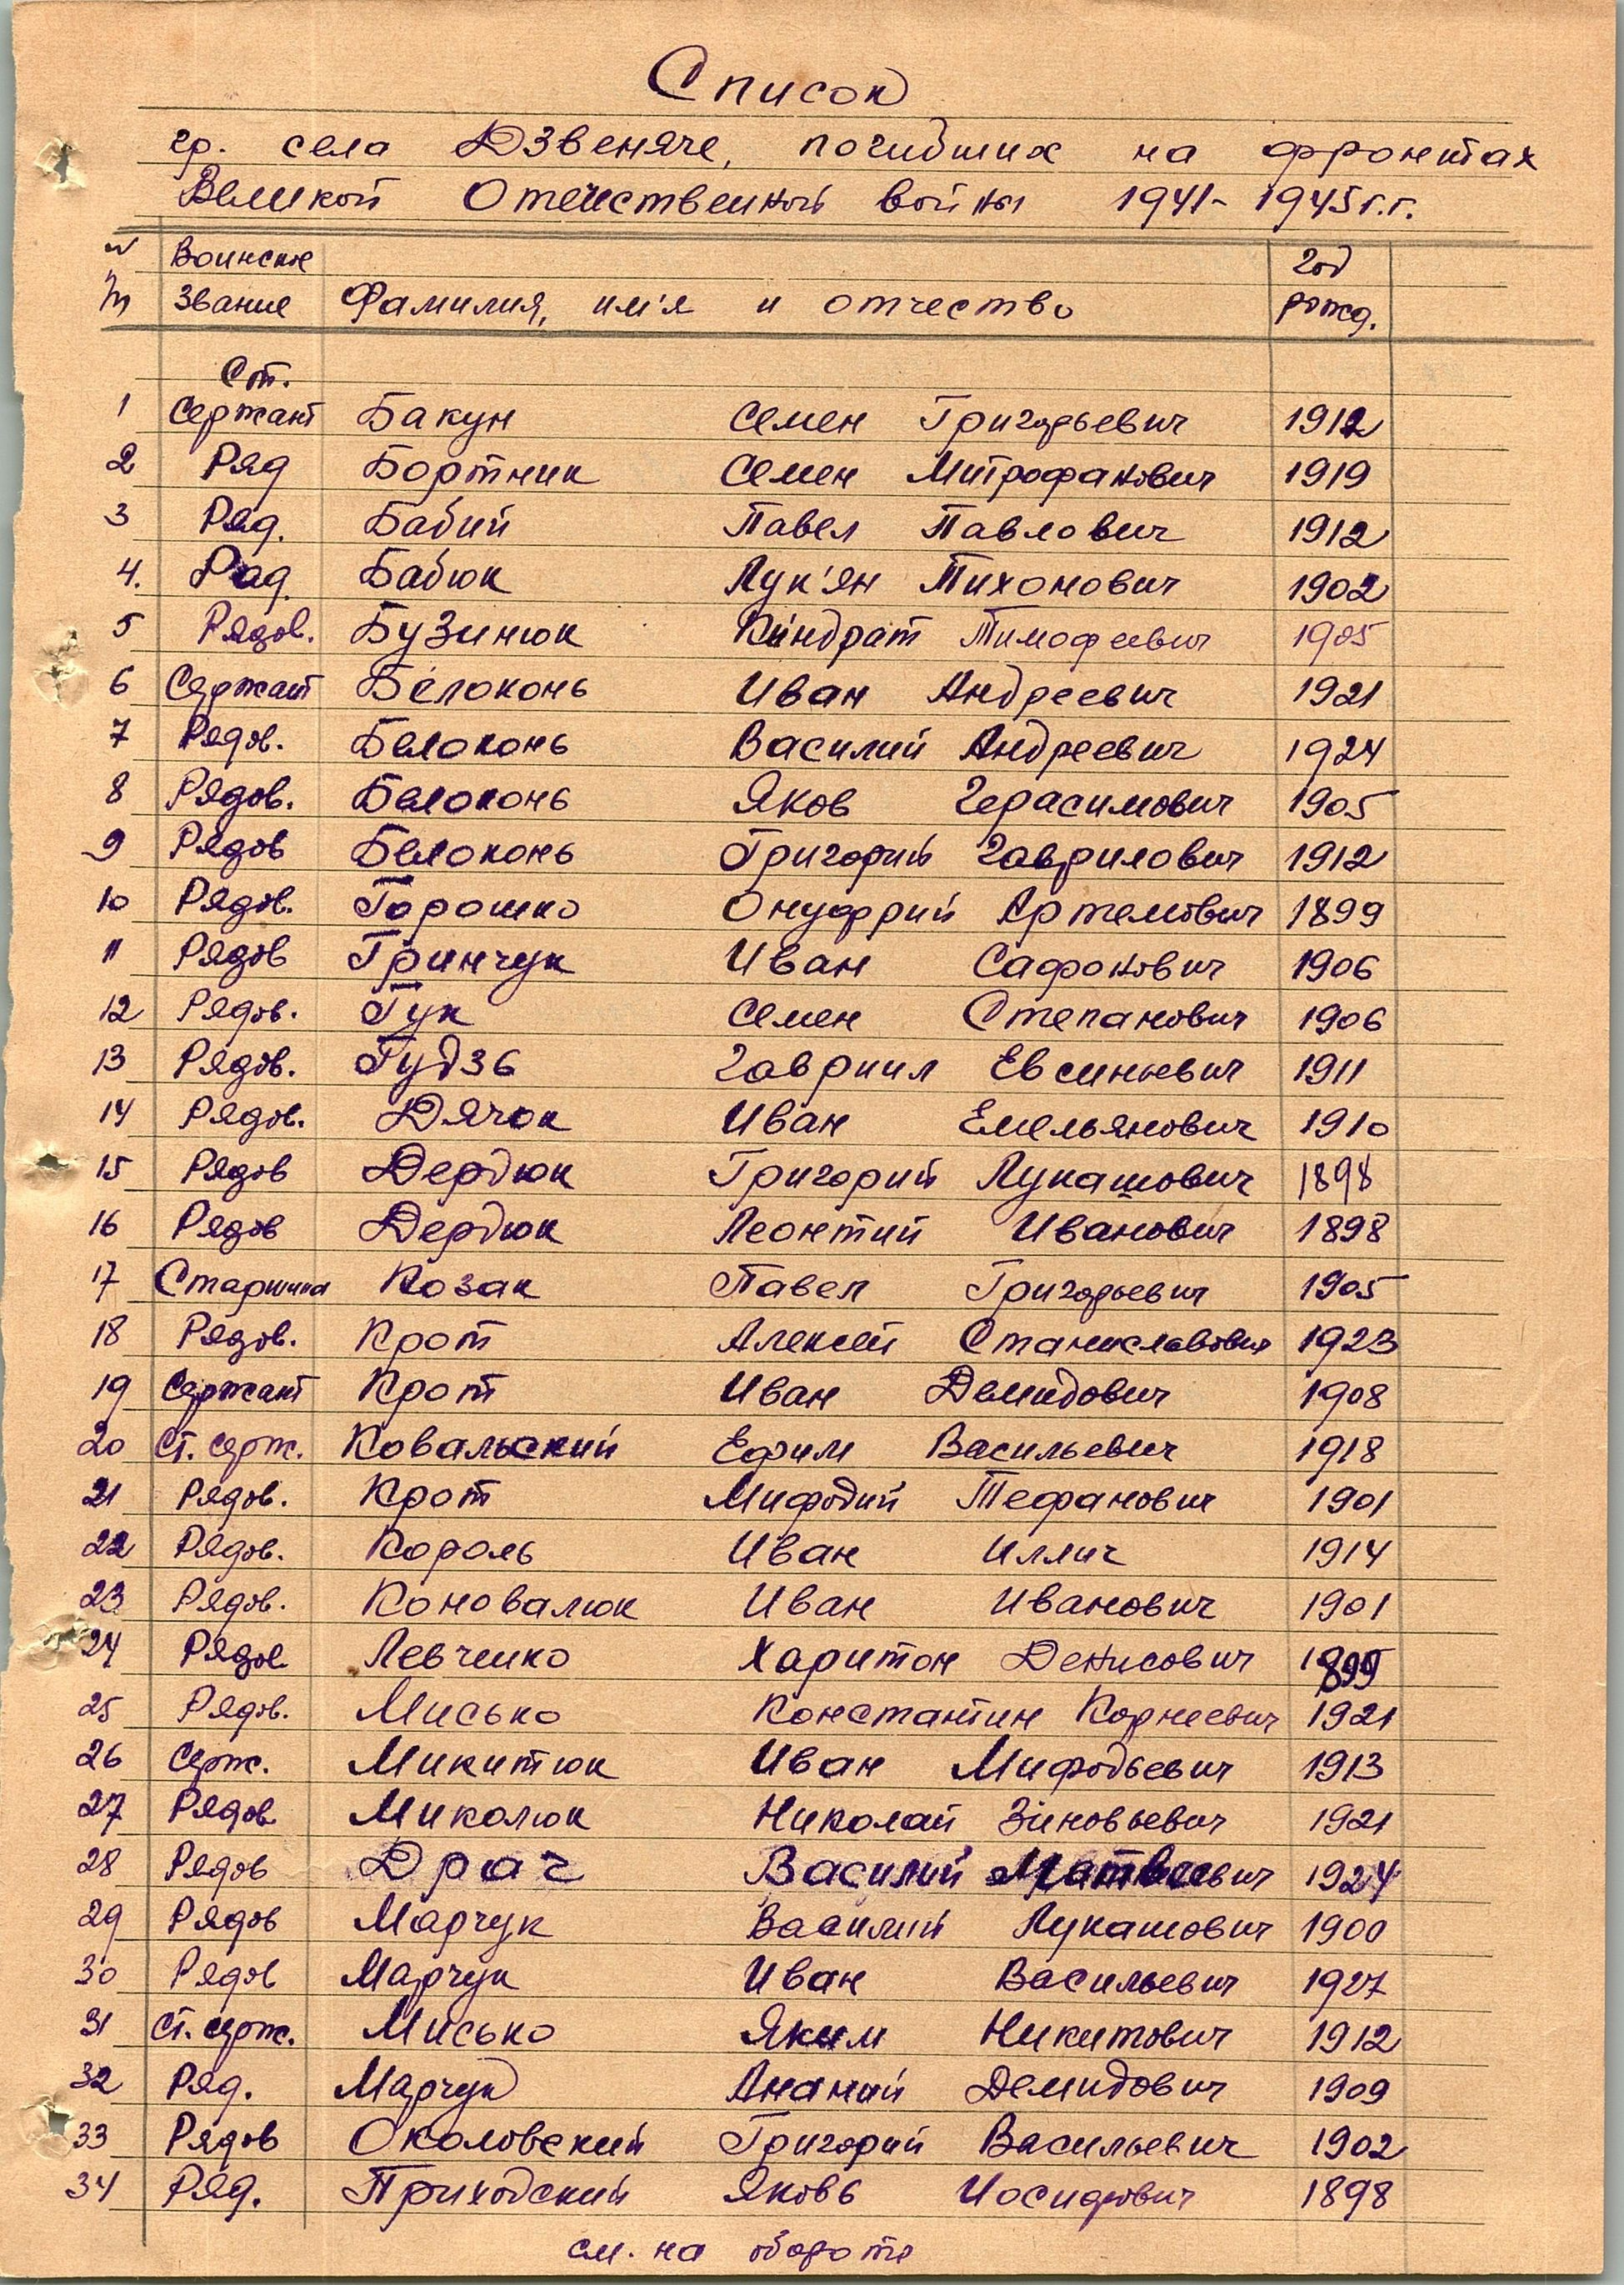 Список
гр. села Дзвеняче, погибших на фронтах
Великой Отечественной войны 1941-1945 г.г.
№ Воинское Год
пп Звание Фамилия, им'я и отчество рожд.
Ст.
1 Сержант Бакун Семен Григорьевич 1912
2 Ряд Бортник Семен Митрофанович 1919
3 Ряд. Бабий Павел Павлович 1912
4. Ряд. Бабюк Лук'ян Тихонович 1902
5 Рядов. Бузинюк Кіндрат Тимофеевич 1905
6 Сержант Белоконь Иван Андреевич 1921
7 Рядов. Белоконь Василий Андреевич 1924
8 Рядов. Белоконь Яков Герасимович 1905
9 Рядов Белоконь Григорий Гаврилович 1912
10 Рядов. Горошко Онуфрий Артемович 1899
11 Рядов Гринчук Иван Сафонович 1906
12 Рядов. Гук Семен Степанович 1906
13 Рядов. Гудзь Гавриил Евсиневич 1911
14 Рядов. Дячок Иван Емельянович 1910
15 Рядов Дердюк Григорий Лукашович 1898
16 Рядов Дердюк Леонтий Иванович 1898
17 Старшина Козак Павел Григорьевич 1905
18 Рядов. Крот Алексей Станиславович 1923
19 Сержант Крот Иван Демидович 1908
20 Ст. серж. Ковальский Ефим Васильевич 1918
21 Рядов. Крот Мифодий Тефанович 1901
22 Рядов. Король Иван Иллич 1914
23 Рядов. Коновалюк Иван Иванович 1901
24 Рядов Левченко Харитон Денисович 1899
25 Рядов. Мисько Константин Корнеевич 1921
26 Серж. Микитюк Иван Мифодьевич 1913
27 Рядов Миколюк Николай Зіновьевич 1921
28 Рядов Драч Василий Матвеевич 1924
29 Рядов Марчук Василий Лукашович 1900
30 Рядов Марчук Иван Васильевич 1927
31 Ст. серж. Мисько Яким Никитович 1912
32 Ряд. Марчук Ананий Демидович 1909
33 Рядов Околовский Григорий Васильевич 1902
34 Ряд. Приходский Яковь Иосифович 1898
см. на обороте